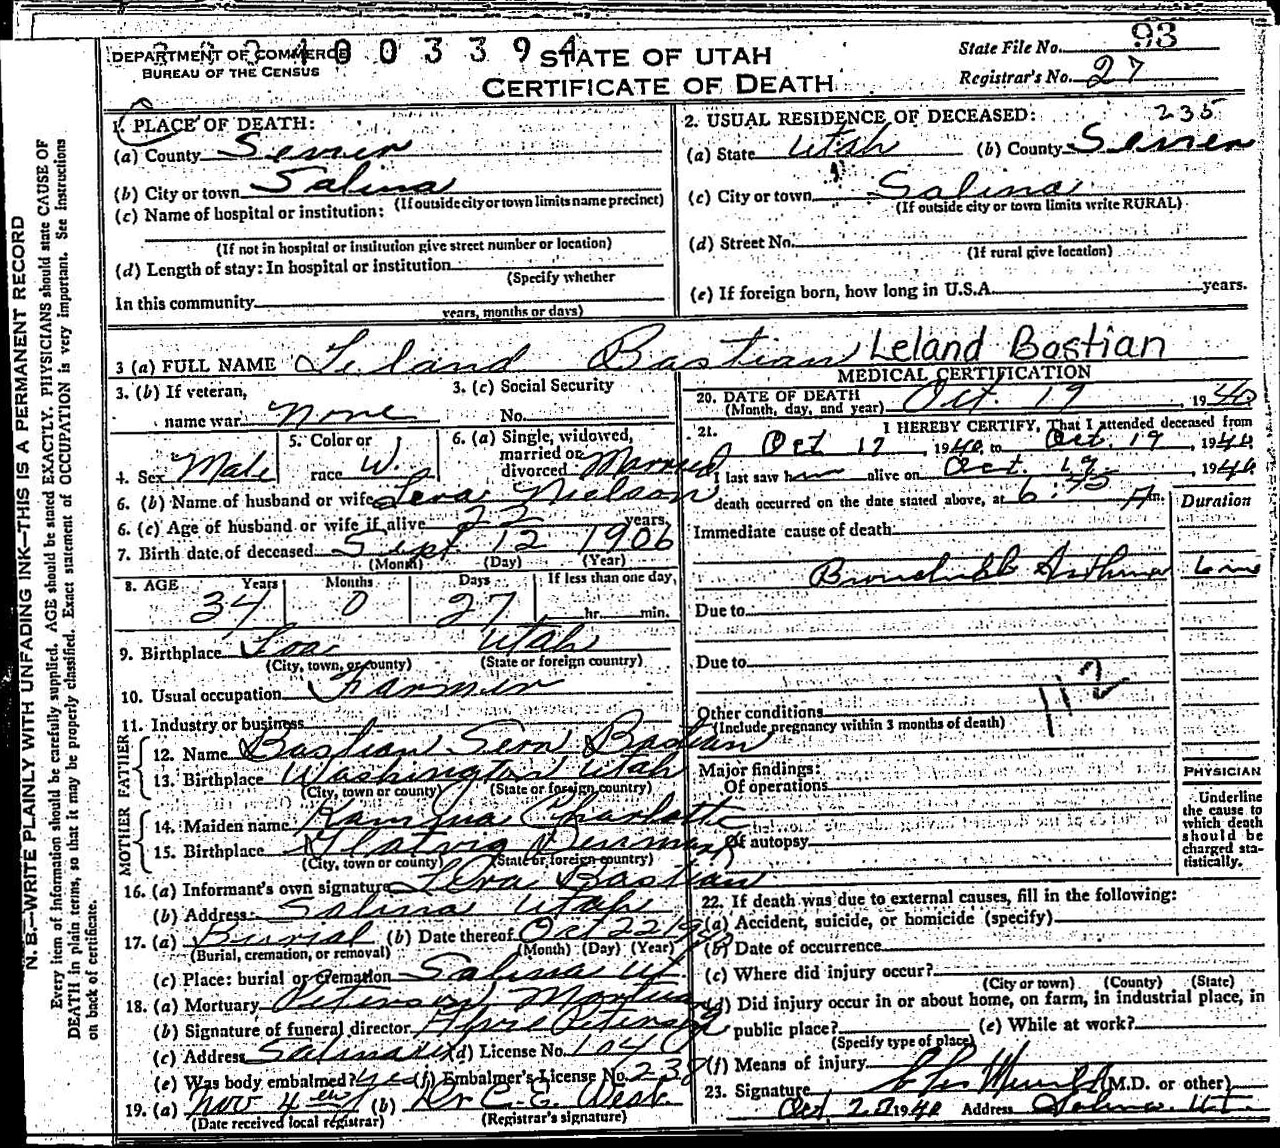 DEPARTMENT OF COMMERCE
BUREAU OF THE CENSUS
1003394
STATE OF UTAH
CERTIFICATE OF DEATH
State File No. 93
Registrar's No. 27
N. B.—WRITE PLAINLY WITH UNFADING INK—THIS IS A PERMANENT RECORD
Every item of information should be carefully supplied. AGE should be stated EXACTLY. PHYSICIANS should state CAUSE OF
DEATH in plain terms, so that it may be properly classified. Exact statement of OCCUPATION is very important. See instructions
on back of certificate.
1. PLACE OF DEATH:
(a) County Sevier
(b) City or town Salina
(If outside city or town limits name precinct)
(c) Name of hospital or institution:
(If not in hospital or institution give street number or location)
(d) Length of stay: In hospital or institution
(Specify whether
In this community
years, months or days)
2. USUAL RESIDENCE OF DECEASED: 235
(a) State Utah (b) County Sevier
(c) City or town Salina
(If outside city or town limits write RURAL)
(d) Street No.
(If rural give location)
(e) If foreign born, how long in U.S.A. years.
3 (a) FULL NAME Leland Bastian Leland Bastian
3. (b) If veteran,
name war None
3. (c) Social Security
No.
4. Sex Male
5. Color or
race W.
6. (a) Single, widowed,
married or
divorced Married
6. (b) Name of husband or wife Leva Nielson
6. (c) Age of husband or wife if alive years
7. Birth date of deceased Sept. 12 1906
(Month) (Day) (Year)
8. AGE Years Months Days If less than one day,
34 0 27 hr. min.
9. Birthplace Loa Utah
(City, town, or county) (State or foreign country)
10. Usual occupation Farmer
11. Industry or business
FATHER
12. Name Bastian Bastian
13. Birthplace Washington Utah
(City, town or county) (State or foreign country)
MOTHER
14. Maiden name Charlotte
15. Birthplace
(City, town or county) (State or foreign country)
16. (a) Informant's own signature Leva Bastian
(b) Address Salina Utah
17. (a) Burial (b) Date thereof Oct 22 19
(Burial, cremation, or removal) (Month) (Day) (Year)
(c) Place: burial or cremation Salina Ut
18. (a) Mortuary Peterson Mortuary
(b) Signature of funeral director Peterson
(c) Address Salina Ut (d) License No. 104
(e) Was body embalmed? yes (f) Embalmer's License No. 230
19. (a) Nov 4 (b) Dr C. E. West
(Date received local registrar) (Registrar's signature)
MEDICAL CERTIFICATION
20. DATE OF DEATH
(Month, day, and year) Oct. 19, 1940
21. I HEREBY CERTIFY, That I attended deceased from
Oct 17, 1940, to Oct. 19, 1940
I last saw him alive on Oct. 19, 1940
death occurred on the date stated above, at 6:45 A m.
Duration
Immediate cause of death
Bronchial Asthma
Due to
Due to
112
Other conditions
(Include pregnancy within 3 months of death)
Major findings:
Of operations
Of autopsy
PHYSICIAN
Underline
the cause to
which death
should be
charged sta-
tistically.
22. If death was due to external causes, fill in the following:
(a) Accident, suicide, or homicide (specify)
(b) Date of occurrence
(c) Where did injury occur?
(City or town) (County) (State)
(d) Did injury occur in or about home, on farm, in industrial place, in
public place? (e) While at work?
(Specify type of place)
(f) Means of injury
23. Signature (M.D. or other)
Oct 1940 Address Salina Ut.